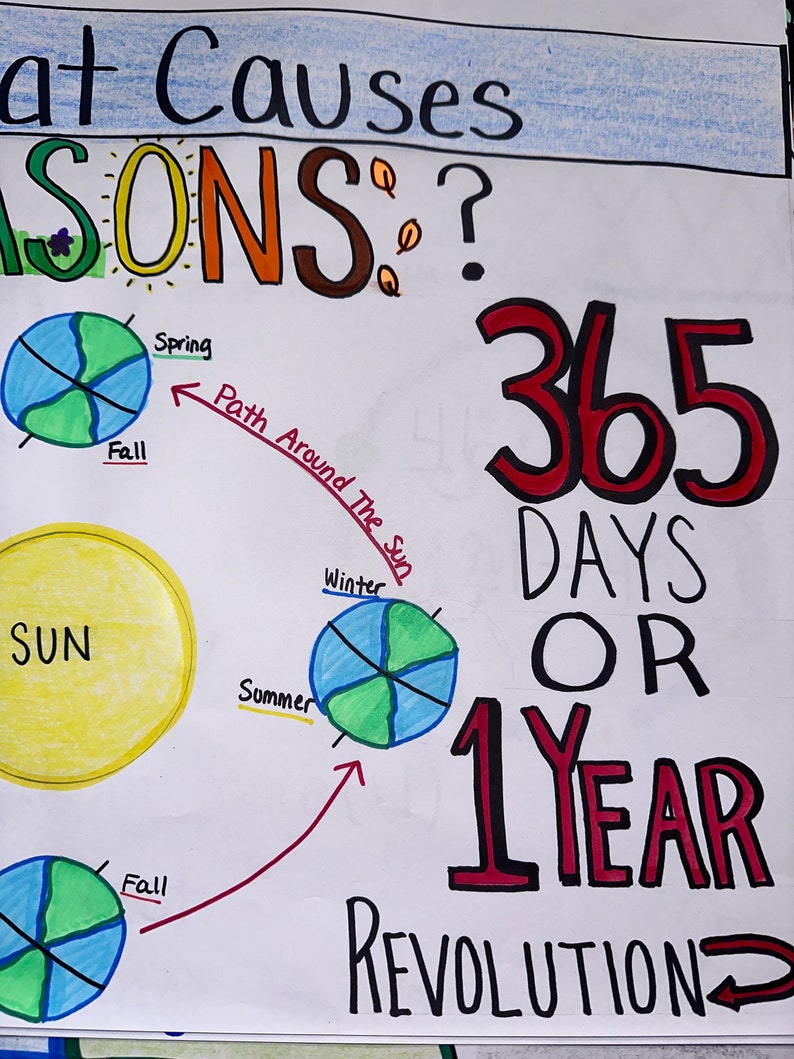 at Causes
ASONS ?
Spring
Fall
Path Around The Sun
365
DAYS
OR
1 YEAR
REVOLUTION
SUN
Winter
Summer
Fall